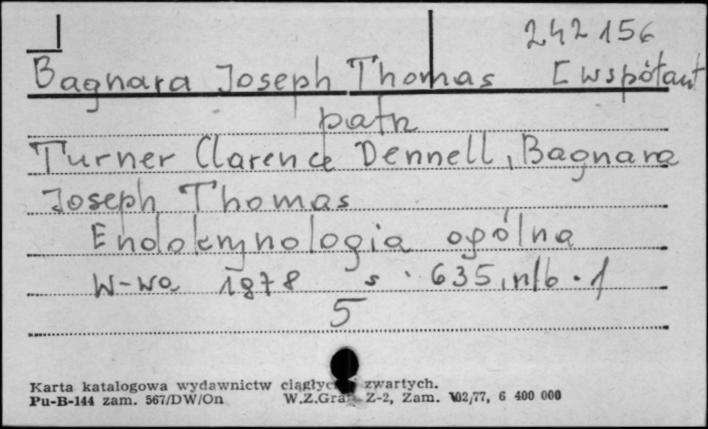 242156
Bagnara Joseph Thomas [współaut
patrz
Turner Clarence Donnell, Bagnara
Joseph Thomas
Endokrynologia ogólna
W-wa 1978 s. 635, nlb. 1
5
Karta katalogowa wydawnictw ciągłych zwartych.
Pu-B-144 zam. 567/DW/On W.Z.Graf. Z-2, Zam. 102/77, 6 400 000